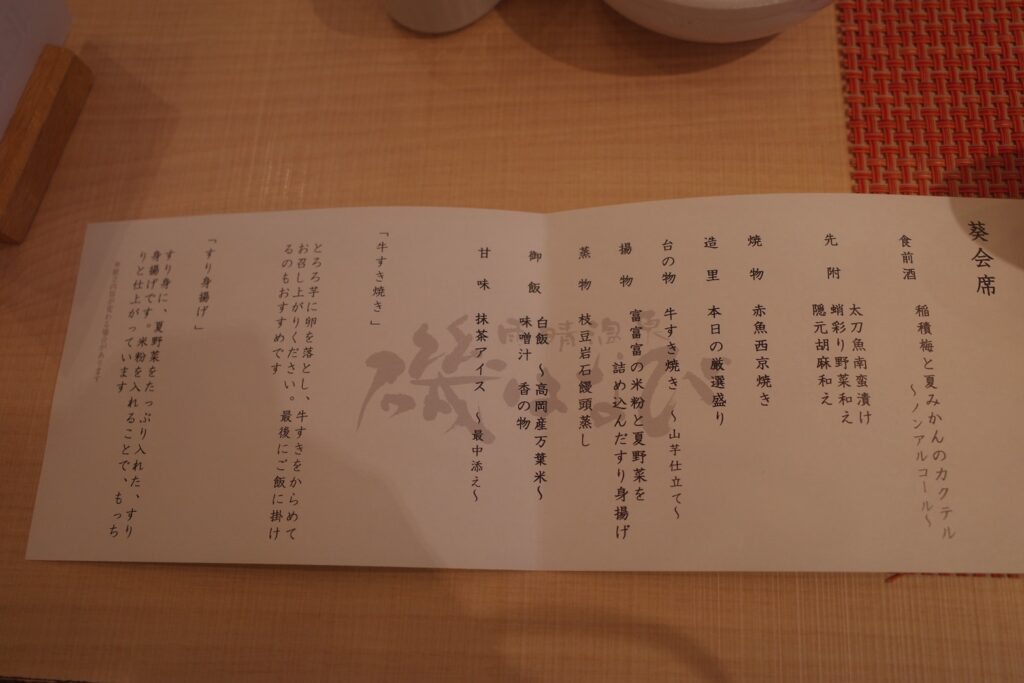 葵会席
食前酒
稲積梅と夏みかんのカクテル
～ノンアルコール～
先附
太刀魚南蛮漬け
蛸彩り野菜和え
隠元胡麻和え
焼物 赤魚西京焼き
造里 本日の厳選盛り
台の物 牛すき焼き ～山芋仕立て～
揚物 富富富の米粉と夏野菜を
詰め込んだすり身揚げ
蒸物 枝豆岩石饅頭蒸し
御飯 白飯 ～高岡産万葉米～
味噌汁 香の物
甘味 抹茶アイス ～最中添え～
「牛すき焼き」
とろろ芋に卵を落とし、牛すきをからめて
お召し上がりください。最後にご飯に掛け
るのもおすすめです
「すり身揚げ」
すり身に、夏野菜をたっぷり入れた、すり
身揚げです。米粉を入れることで、もっち
りと仕上がっています
雨晴温泉
磯はなび